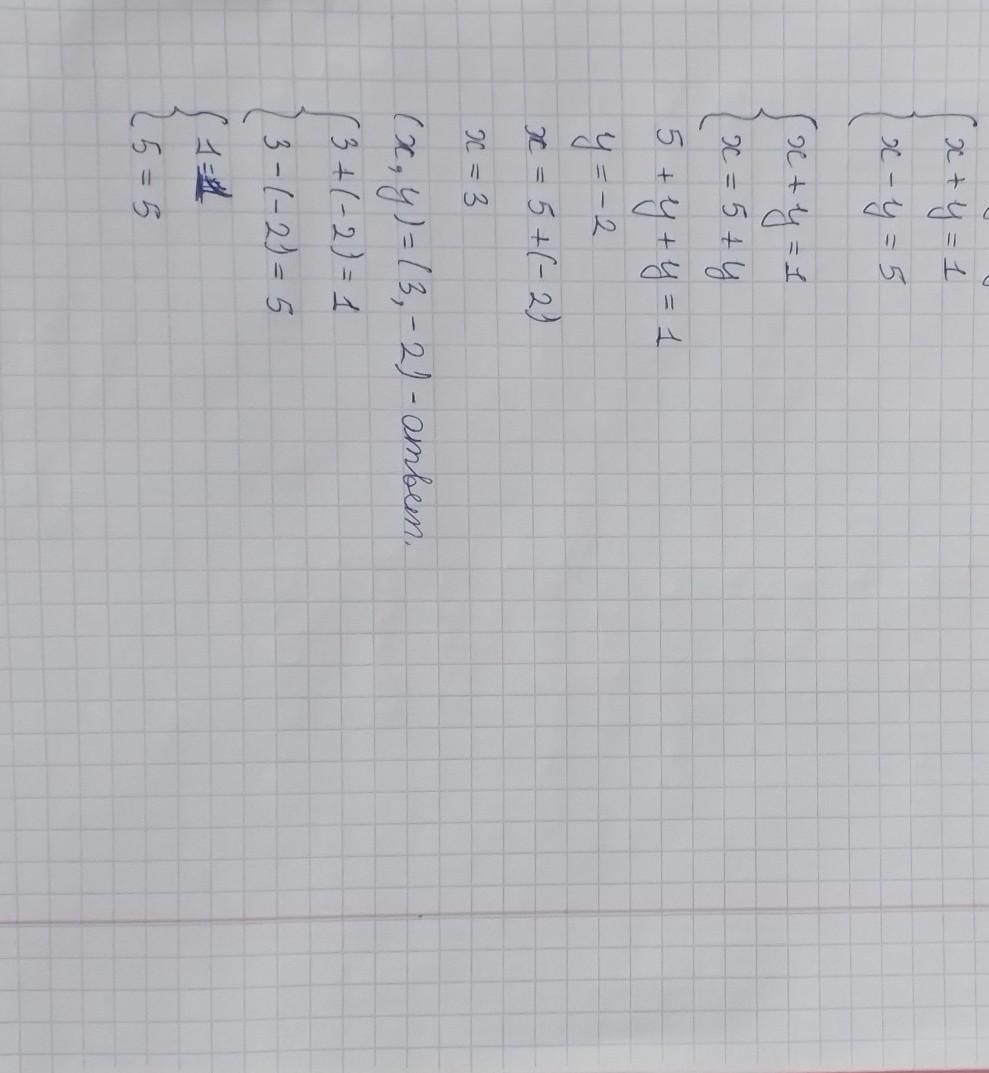 { x + y = 1
{ x - y = 5
{ x + y = 1
{ x = 5 + y
5 + y + y = 1
y = -2
x = 5 + (-2)
x = 3
(x, y) = (3, -2) - ответ.
{ 3 + (-2) = 1
{ 3 - (-2) = 5
{ 1 = 1
{ 5 = 5